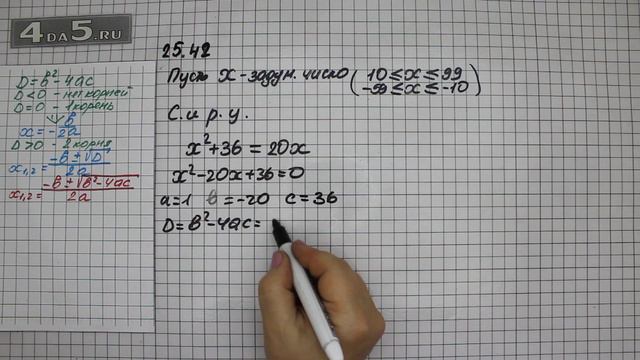 4DA5.RU
D=b²-4ac
D<0 - нет корней
D=0 - 1 корень
x=-b/2a
D>0 - 2 корня
x₁,₂=(-b±√D)/2a
x₁,₂=(-b±√b²-4ac)/2a
25.42
Пусть x-задум. число (10≤x≤99
-99≤x≤-10)
С. и р. у.
x²+36=20x
x²-20x+36=0
a=1 b=-20 c=36
D=b²-4ac=